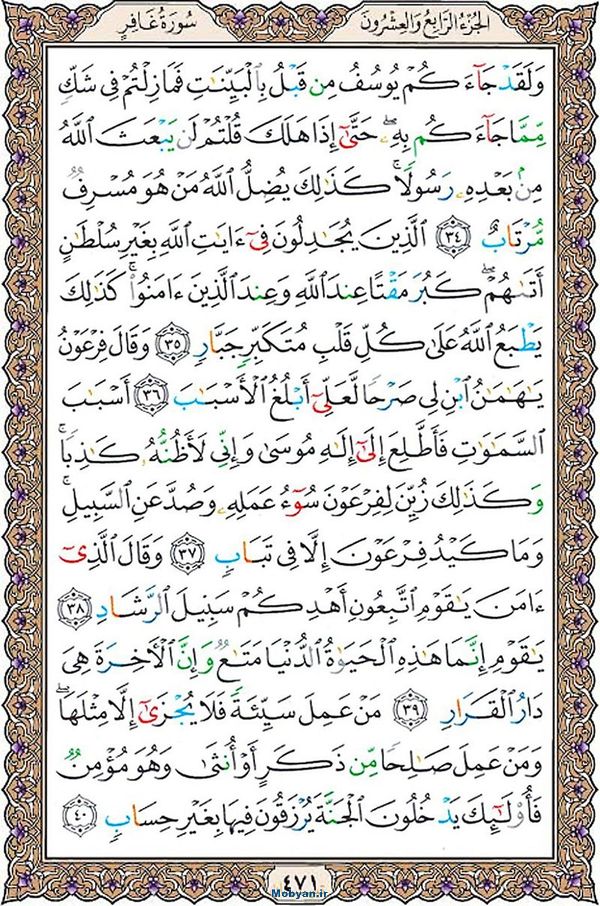 الجُزءُ الرَّابِعُ وَالعِشرُونَ
سُورَةُ غَافِرٍ
وَلَقَدْ جَآءَكُمْ يُوسُفُ مِن قَبْلُ بِالْبَيِّنَٰتِ فَمَا زِلْتُمْ فِى شَكٍّ
مِّمَّا جَآءَكُم بِهِۦ ۖ حَتَّىٰٓ إِذَا هَلَكَ قُلْتُمْ لَن يَبْعَثَ ٱللَّهُ
مِنۢ بَعْدِهِۦ رَسُولًا ۚ كَذَٰلِكَ يُضِلُّ ٱللَّهُ مَنْ هُوَ مُسْرِفٌ
مُّرْتَابٌ ٣٤ ٱلَّذِينَ يُجَٰدِلُونَ فِىٓ ءَايَٰتِ ٱللَّهِ بِغَيْرِ سُلْطَٰنٍ
أَتَىٰهُمْ ۖ كَبُرَ مَقْتًا عِندَ ٱللَّهِ وَعِندَ ٱلَّذِينَ ءَامَنُوا۟ ۚ كَذَٰلِكَ
يَطْبَعُ ٱللَّهُ عَلَىٰ كُلِّ قَلْبِ مُتَكَبِّرٍ جَبَّارٍ ٣٥ وَقَالَ فِرْعَوْنُ
يَٰهَٰمَٰنُ ٱبْنِ لِى صَرْحًا لَّعَلِّىٓ أَبْلُغُ ٱلْأَسْبَٰبَ ٣٦ أَسْبَٰبَ
ٱلسَّمَٰوَٰتِ فَأَطَّلِعَ إِلَىٰٓ إِلَٰهِ مُوسَىٰ وَإِنِّى لَأَظُنُّهُۥ كَٰذِبًا ۚ
وَكَذَٰلِكَ زُيِّنَ لِفِرْعَوْنَ سُوٓءُ عَمَلِهِۦ وَصُدَّ عَنِ ٱلسَّبِيلِ ۚ
وَمَا كَيْدُ فِرْعَوْنَ إِلَّا فِى تَبَابٍ ٣٧ وَقَالَ ٱلَّذِىٓ
ءَامَنَ يَٰقَوْمِ ٱتَّبِعُونِ أَهْدِكُمْ سَبِيلَ ٱلرَّشَادِ ٣٨
يَٰقَوْمِ إِنَّمَا هَٰذِهِ ٱلْحَيَوٰةُ ٱلدُّنْيَا مَتَٰعٌ وَإِنَّ ٱلْءَاخِرَةَ هِىَ
دَارُ ٱلْقَرَارِ ٣٩ مَنْ عَمِلَ سَيِّئَةً فَلَا يُجْزَىٰٓ إِلَّا مِثْلَهَا ۖ
وَمَنْ عَمِلَ صَٰلِحًا مِّن ذَكَرٍ أَوْ أُنثَىٰ وَهُوَ مُؤْمِنٌ
فَأُو۟لَٰٓئِكَ يَدْخُلُونَ ٱلْجَنَّةَ يُرْزَقُونَ فِيهَا بِغَيْرِ حِسَابٍ ٤٠
٤٧١
Mobyan.ir